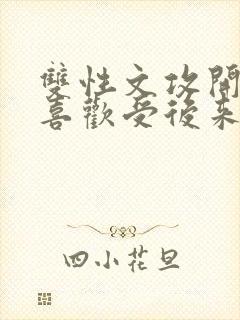 雙性文攻開
喜歡受後來
四小花旦